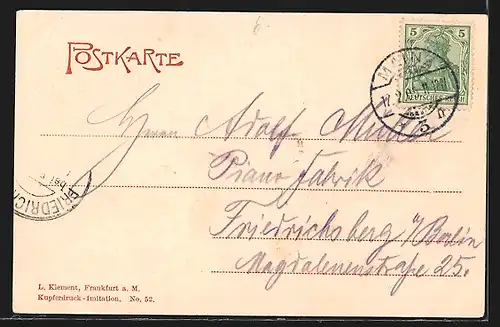 POSTKARTE
5 5
DEUTSCHES REICH
MAINZ
3
Herrn Adolf Müller
Piano Fabrik
Friedrichsberg b/Berlin
Magdalenenstraße 25.
FRIEDRICHS
L. Klement, Frankfurt a. M.
Kupferdruck-Imitation, No. 52.